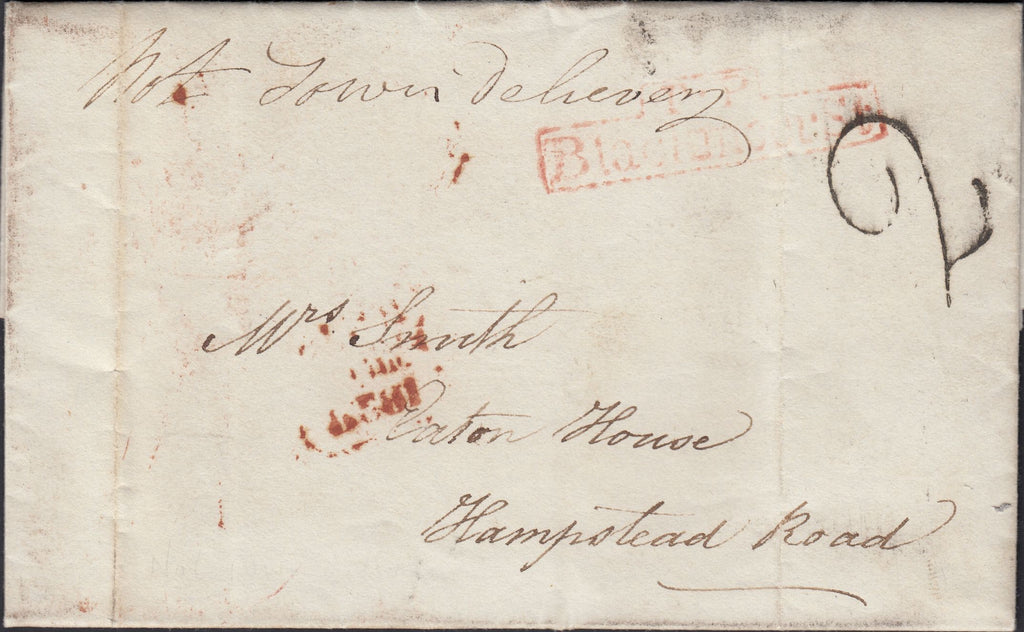 Not Town Delievery
Mrs Smith
Eaton House
Hampstead Road
2